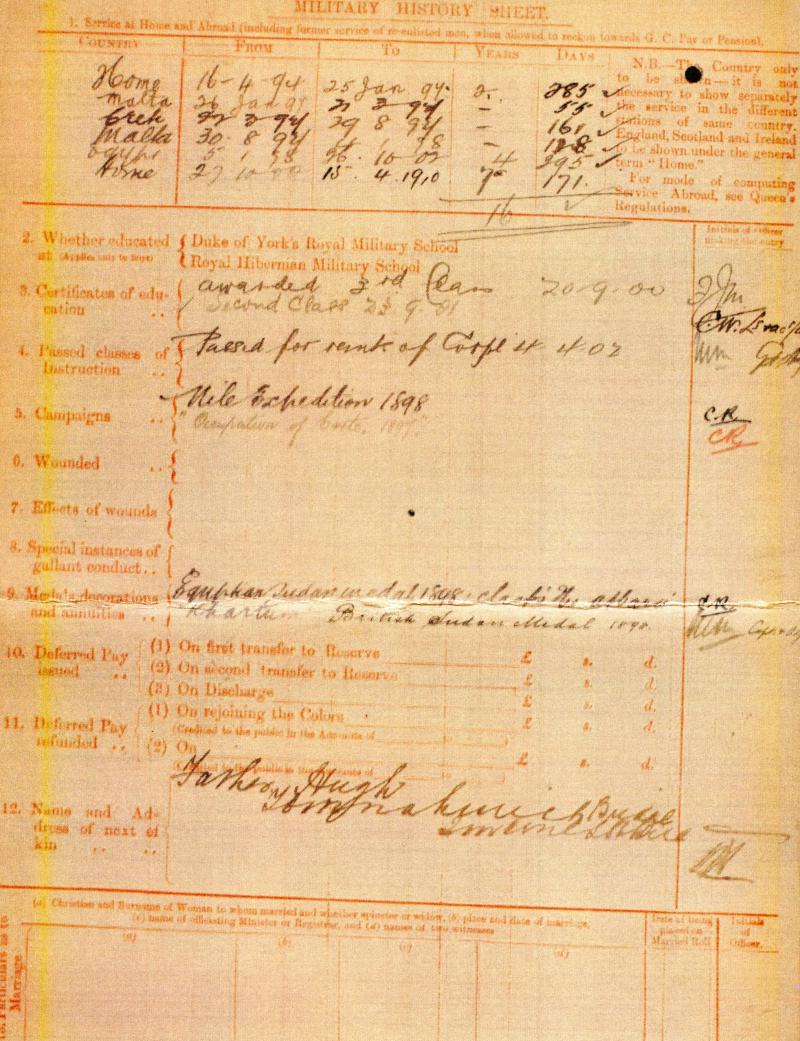 MILITARY HISTORY SHEET.
1. Service at Home and Abroad (including former service of re-enlisted men, when allowed to reckon towards G. C. Pay or Pension).
COUNTRY FROM TO YEARS DAYS
Home 16-4-94 25 Jan 97 2 285
Malta 26 Jan 97 21 3 97 - 55
Crete 22 3 97 29 8 97 - 161
Malta 30 8 97 4 1 98 - 128
Egypt 5 1 98 26 10 02 4 295
Home 27 10 02 15 4 1910 7 171
16
N.B.—The Country only
to be shown—it is not
necessary to show separately
the service in the different
stations of same country.
England, Scotland and Ireland
to be shown under the general
term "Home."
For mode of computing
Service Abroad, see Queen's
Regulations.
Initials of Officer
making the entry
2. Whether educated
at (Applies only to Boys)
Duke of York's Royal Military School
Royal Hibernian Military School
3. Certificates of edu-
cation ..
awarded 3rd Class 20-9-00
Second Class 9. 01
4. Passed classes of
Instruction ..
Passed for rank of Corpl 4 4 02
5. Campaigns ..
Nile Expedition 1898
"Occupation of Crete, 1897."
C.R.
C.R.
6. Wounded ..
7. Effects of wounds
8. Special instances of
gallant conduct..
9. Medals, decorations
and annuities ..
Egyptian Sudan medal 1898: clasps The Atbara
Khartum British Sudan Medal 1898.
C.R.
10. Deferred Pay
issued ..
(1) On first transfer to Reserve £ s. d.
(2) On second transfer to Reserve £ s. d.
(3) On Discharge £ s. d.
11. Deferred Pay
refunded ..
(1) On rejoining the Colors £ s. d.
(Credited to the public in the Accounts of )
(2) On £ s. d.
(Credited to the public in the Accounts of )
12. Name and Ad-
dress of next of
kin .. ..
Father, Hugh
Bridge
13. Particulars as to
Marriage.
(a) Christian and Surname of Woman to whom married and whether spinster or widow, (b) place and date of marriage,
(c) name of officiating Minister or Registrar, and (d) names of two witnesses
(a) (b) (c) (d)
Date of being
placed on
Married Roll
Initials
of
Officer.